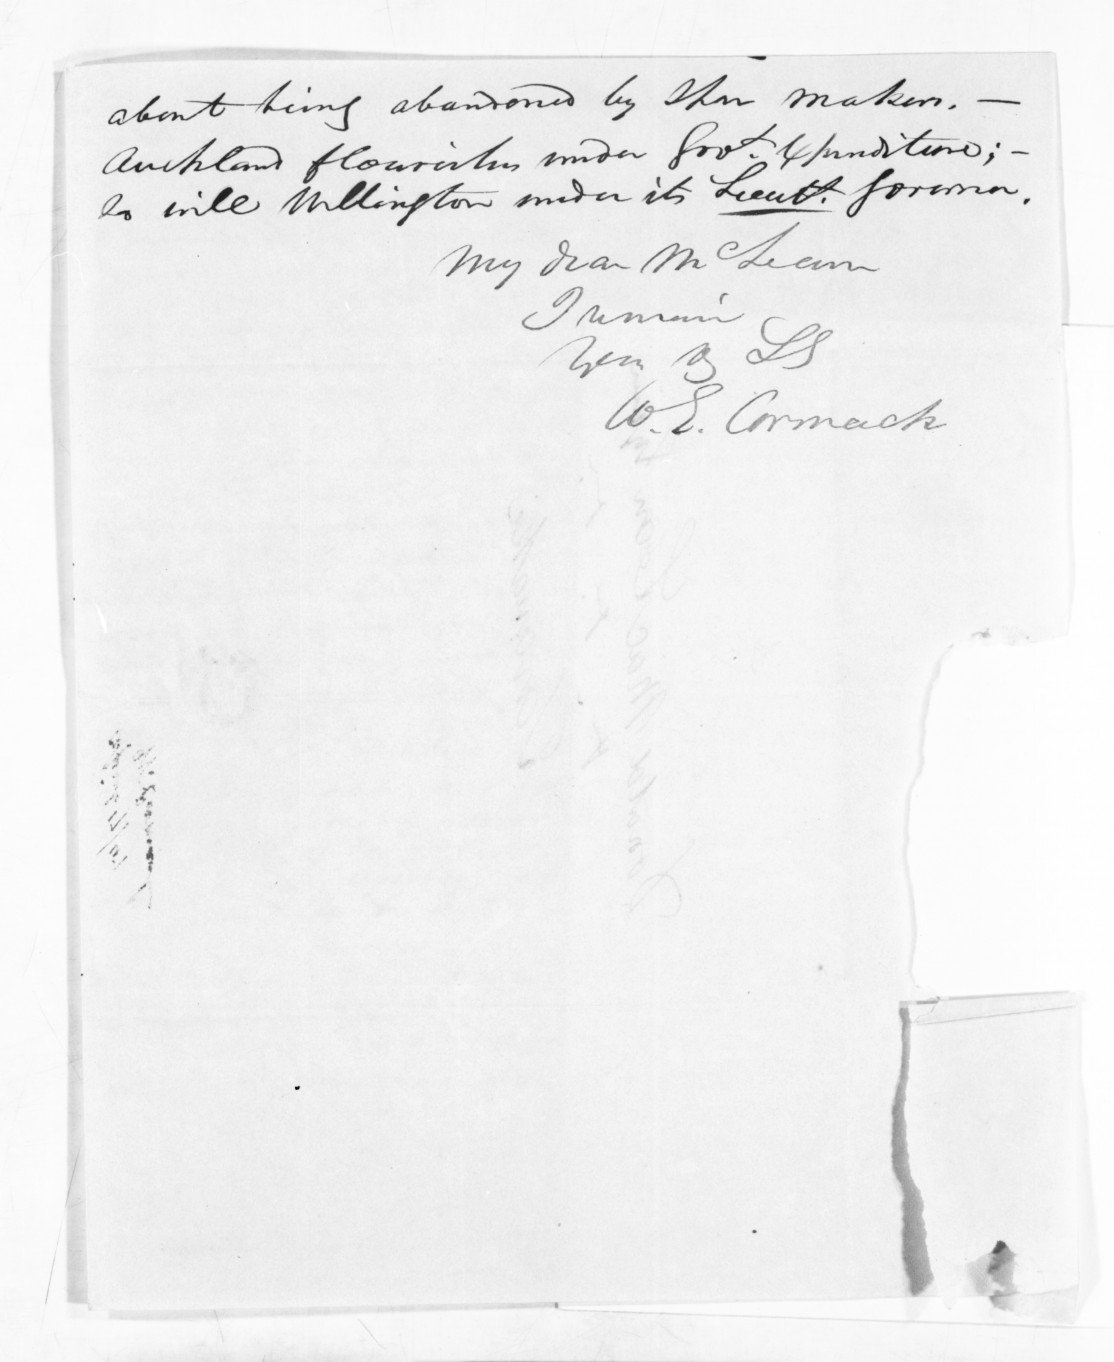 about being abandoned by their makers. —
Auckland flourishes under Govt. Expenditure; –
so will Wellington under its Lieut. Governor.
My dear McLean
I remain
Yours
W. E. Cormack
Donald MacLean
Taranaki